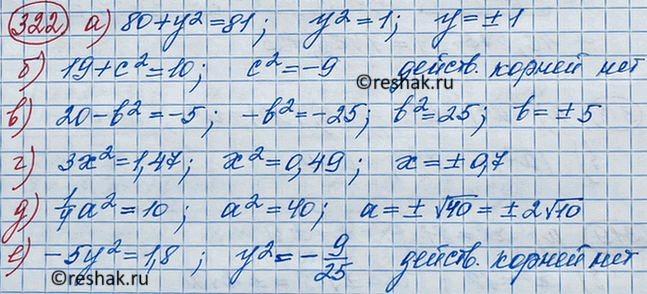 322 а) 80+y²=81; y²=1; y=±1
б) 19+c²=10; c²=-9 действ. корней нет
в) 20-b²=-5; -b²=-25; b²=25; b=±5
г) 3x²=1,47; x²=0,49; x=±0,7
д) 1/4a²=10; a²=40; a=±√40=±2√10
е) -5y²=1,8; y²=-9/25 действ. корней нет
©reshak.ru
©reshak.ru